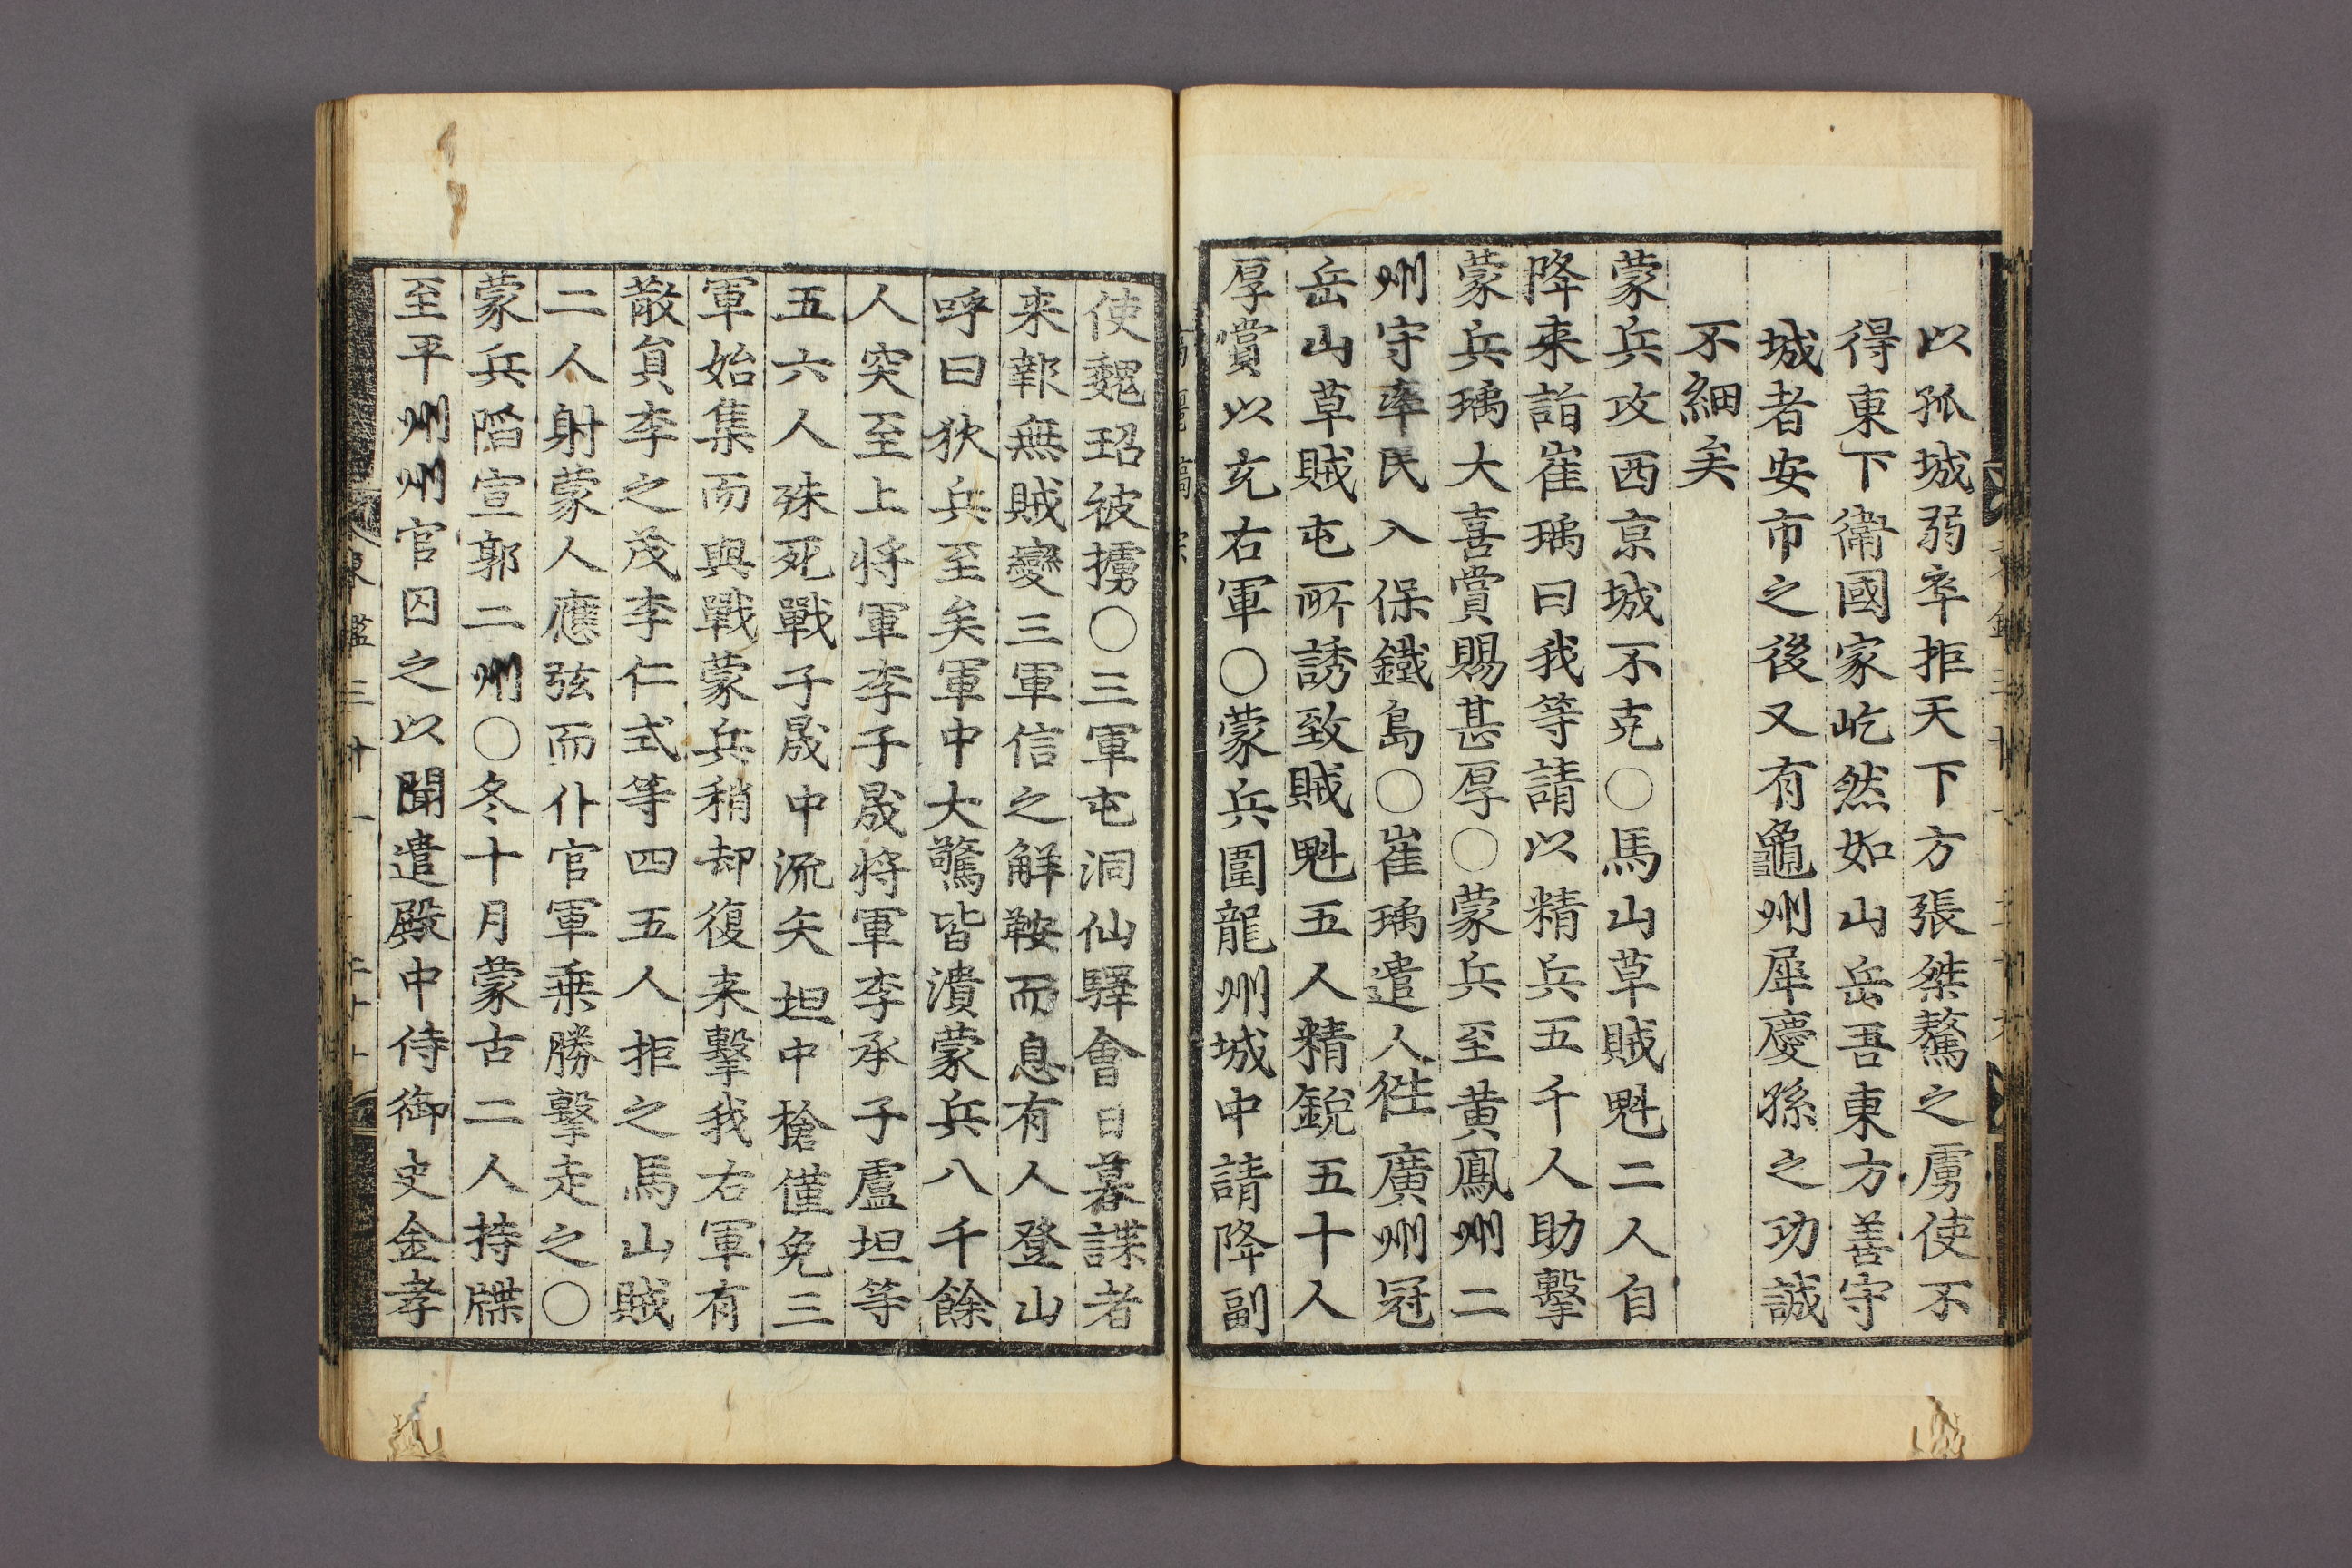 以孤城弱卒拒天下方張桀驁之虜使不
得東下衛國家屹然如山岳吾東方善守
城者安市之後又有龜州犀慶孫之功誠
不細矣
蒙兵攻西京城不克○馬山草賊魁二人自
降来詣崔瑀曰我等請以精兵五千人助擊
蒙兵瑀大喜賞賜甚厚○蒙兵至黄鳳州二
州守率民入保鐵島○崔瑀遣人徃廣州冠
岳山草賊屯所誘致賊魁五人精銳五十人
厚賞以充右軍○蒙兵圍龍州城中請降副
使魏玿被擄○三軍屯洞仙驛會日暮諜者
来報無賊變三軍信之解鞍而息有人登山
呼曰狄兵至矣軍中大驚皆潰蒙兵八千餘
人突至上将軍李子晟将軍李承子盧坦等
五六人殊死戰子晟中流矢坦中槍僅免三
軍始集而與戰蒙兵稍却復来擊我右軍有
散負李之茂李仁式等四五人拒之馬山賊
二人射蒙人應弦而仆官軍乗勝擊走之○
蒙兵陷宣郭二州○冬十月蒙古二人持牒
至平州州官囚之以聞遣殿中侍御史金孝
東鑑三十一